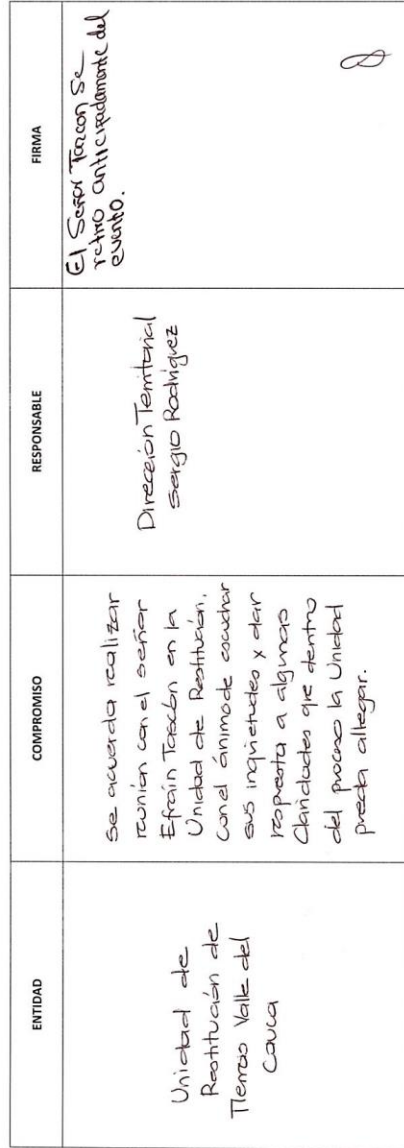 ENTIDAD
COMPROMISO
RESPONSABLE
FIRMA
Unidad de
Restitución de
Tierras Valle del
Cauca
se acuerda realizar
reunión con el señor
Efraín Tascón en la
Unidad de Restitución,
con el ánimo de escuchar
sus inquietudes y dar
respuesta a algunas
Claridades que dentro
del proceso la Unidad
pueda allegar.
Dirección Territorial
Sergio Rodríguez
El Señor Tazcon se
retiro anticipadamente del
evento.